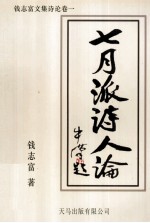 钱志富文集诗论卷一
七月派诗人論
钱志富 著
天马出版有限公司